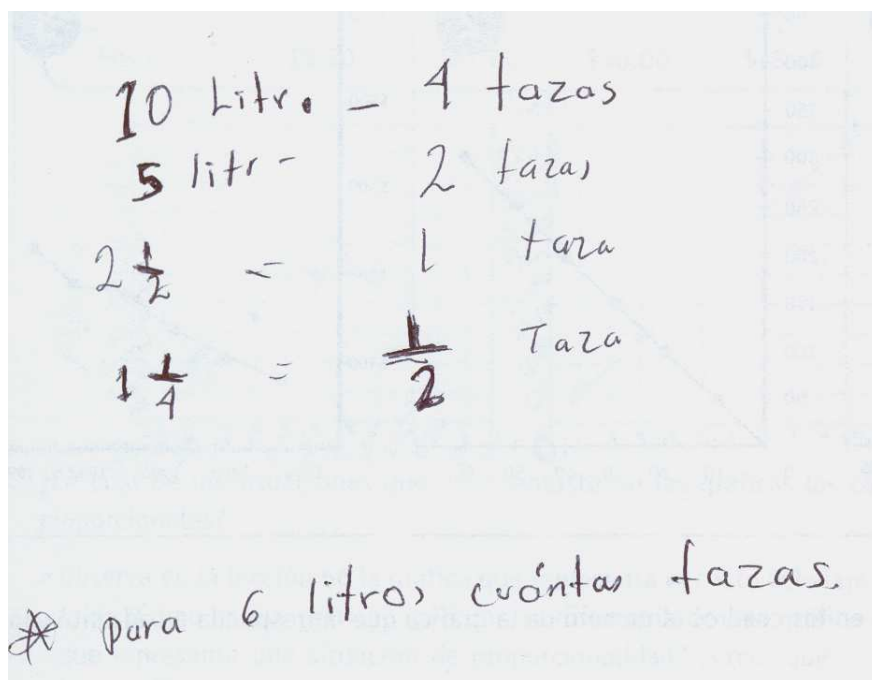 10 Litro – 4 tazas
5 litr – 2 tazas
2 1/2 = 1 taza
1 1/4 = 1/2 Taza
* para 6 litros cuántas tazas.